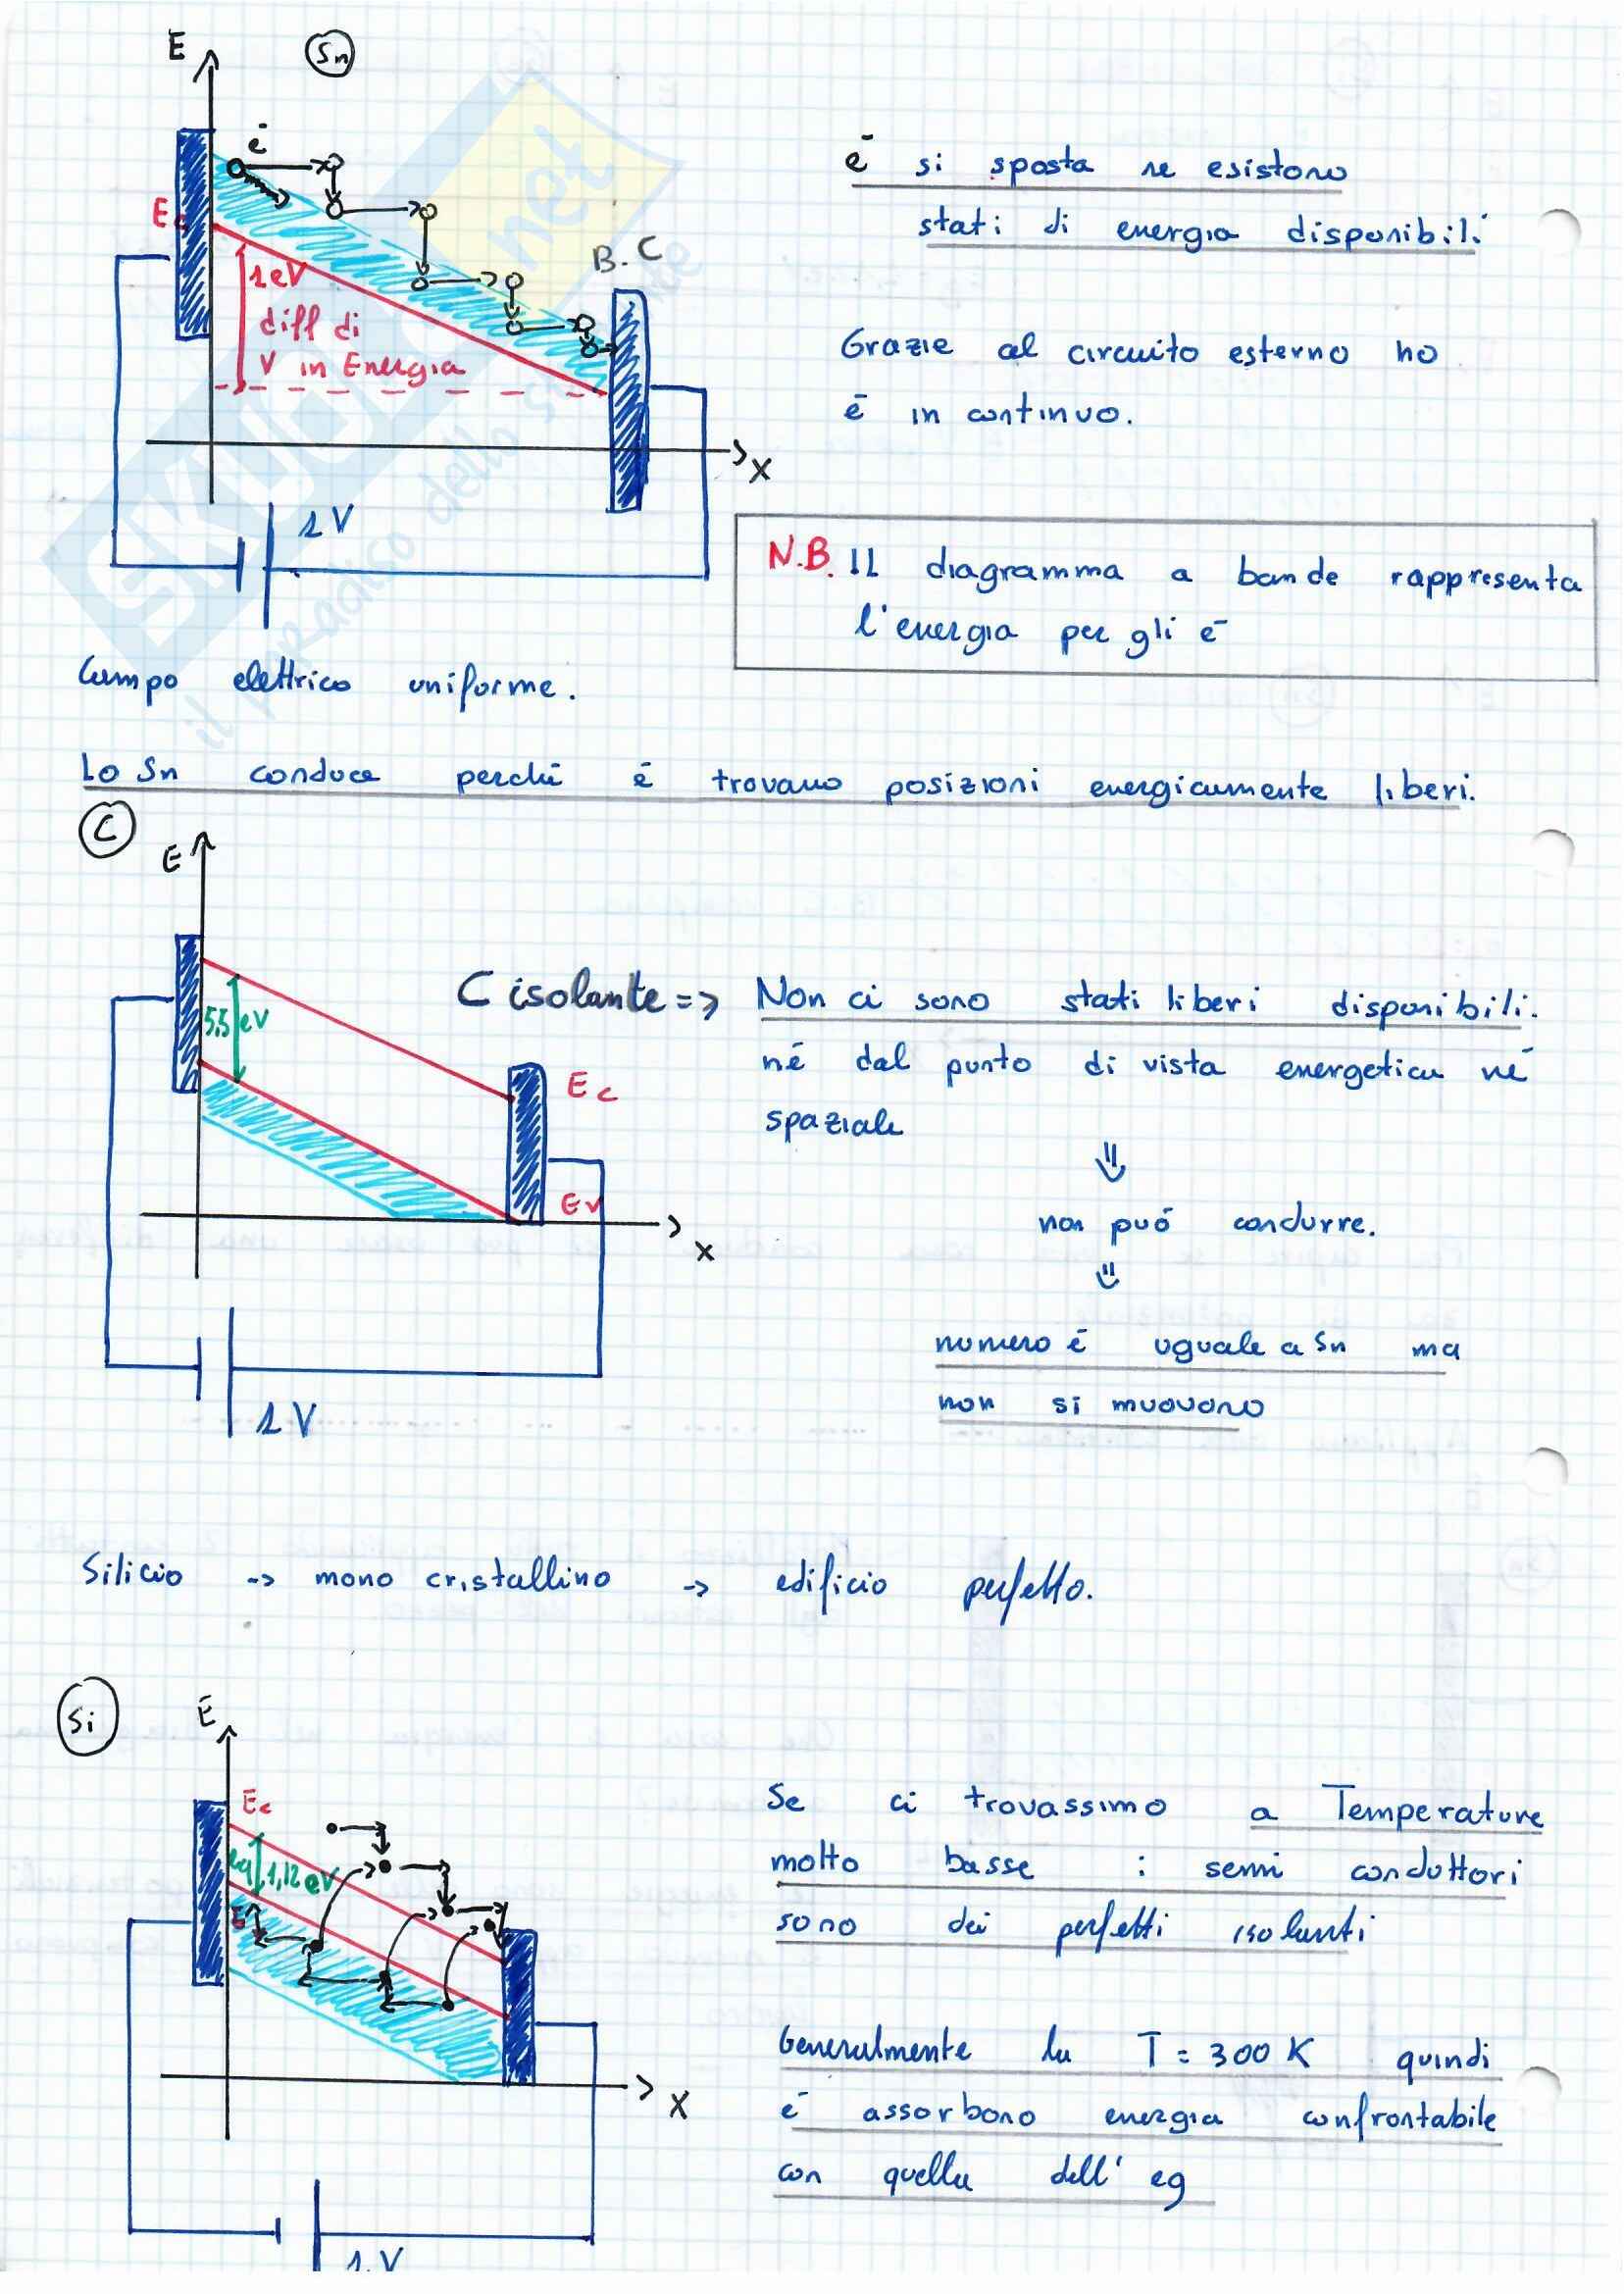 E
Sn
e⁻
Ec
1eV
diff di
V in Energia
B.C
x
1V
e⁻ si sposta se esistono
stati di energia disponibili
Grazie al circuito esterno ho
e⁻ in continuo.
N.B. Il diagramma a bande rappresenta
l'energia per gli e⁻
Campo elettrico uniforme.
Lo Sn conduce perchè e⁻ trovano posizioni energicamente liberi.
C
E
5,5 eV
Ec
Ev
x
1V
C isolante => Non ci sono stati liberi disponibili.
né dal punto di vista energetico né
spaziale
⇓
non può condurre.
⇓
numero e⁻ uguale a Sn ma
non si muovono
Silicio -> mono cristallino -> edificio perfetto.
Si
E
Ec
eg 1,12 eV
x
1V
Se ci trovassimo a Temperature
molto basse : semi conduttori
sono dei perfetti isolanti
Generalmente la T = 300 K quindi
e⁻ assorbono energia confrontabile
con quella dell' eg
SKUOLA
.net
il paradiso dello studente